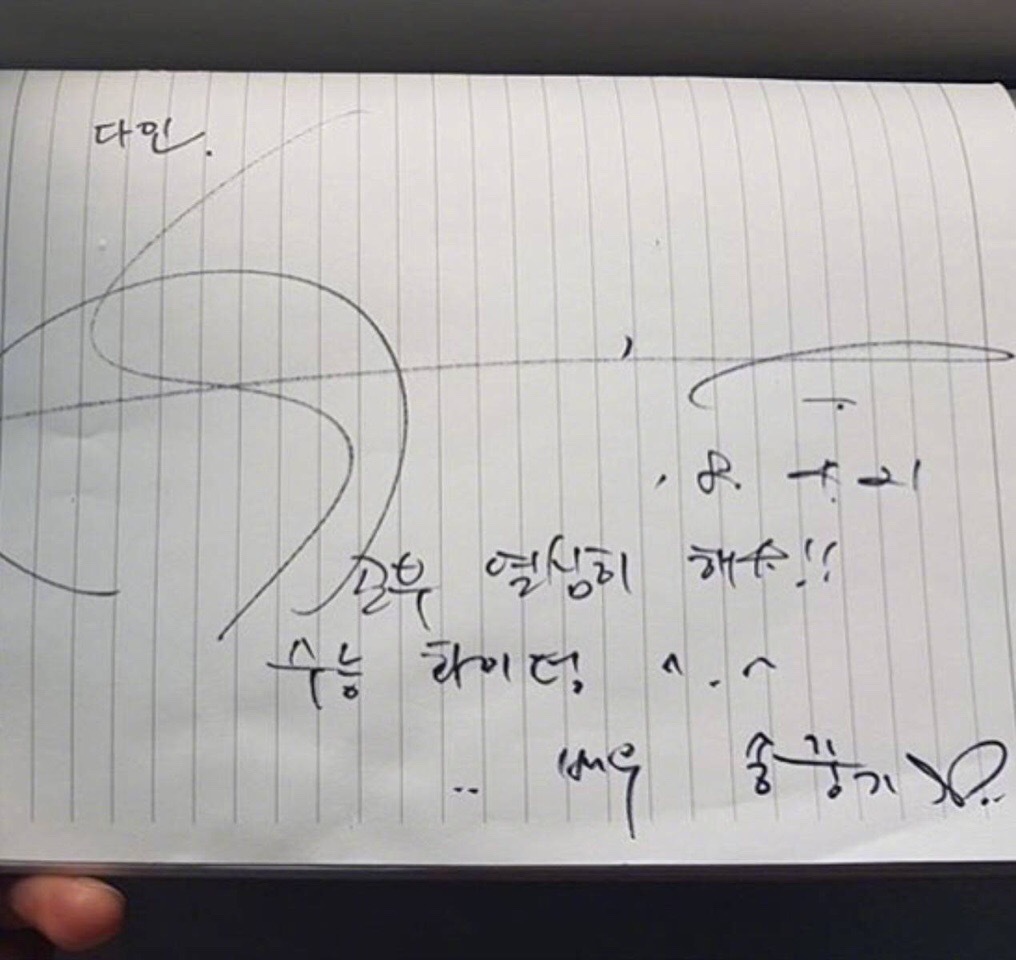 다민.
공부 열심히 해요!!
수능 화이팅 ^.^
.. 배우 송중기